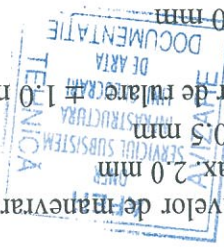 velor de manevrar
ax. 2.0 mm
0.5 mm
r de rulare ± 1.0 m
0 mm
SERVICIUL SUBSISTEM
INFRASTRUCTURA
DOCUMENTATIE
TEHNICĂ
AVIZARE